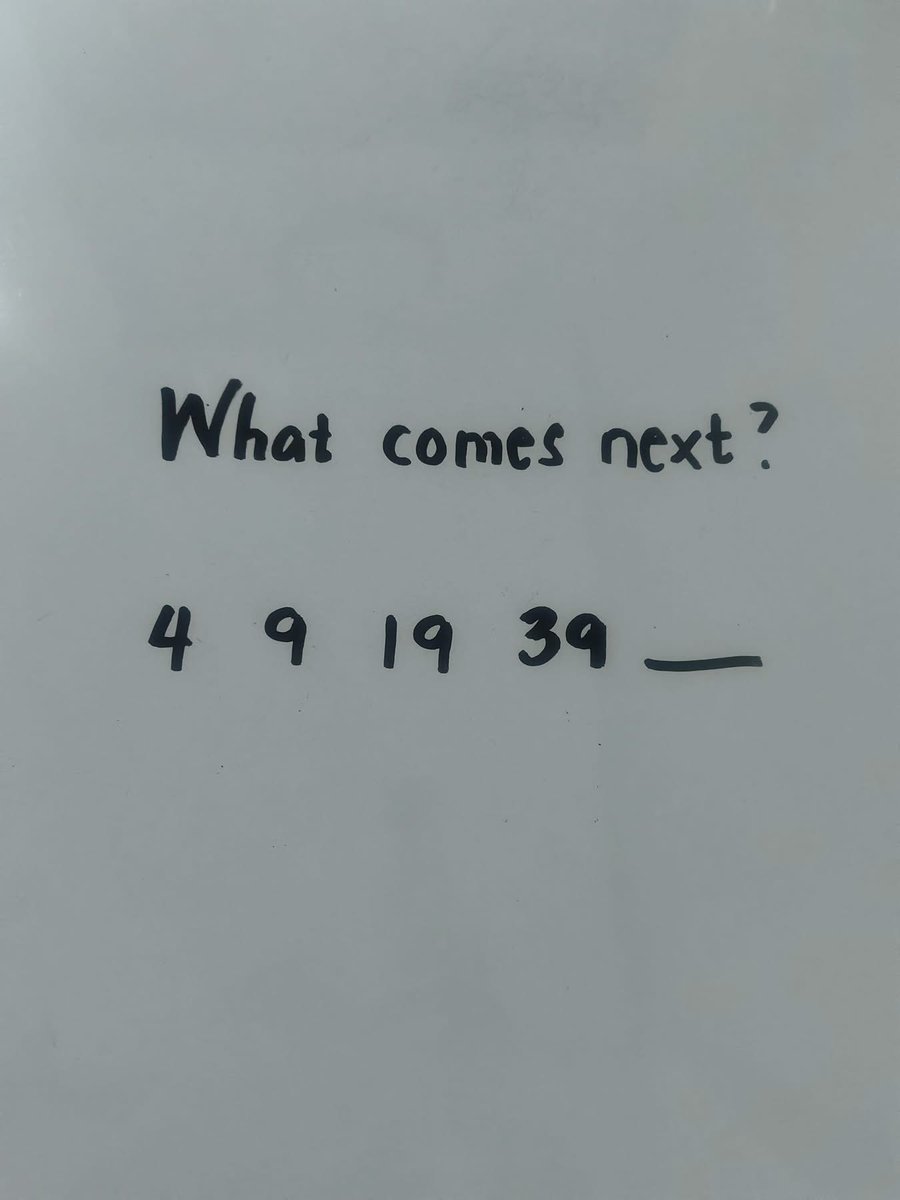 What comes next?
4 9 19 39 __